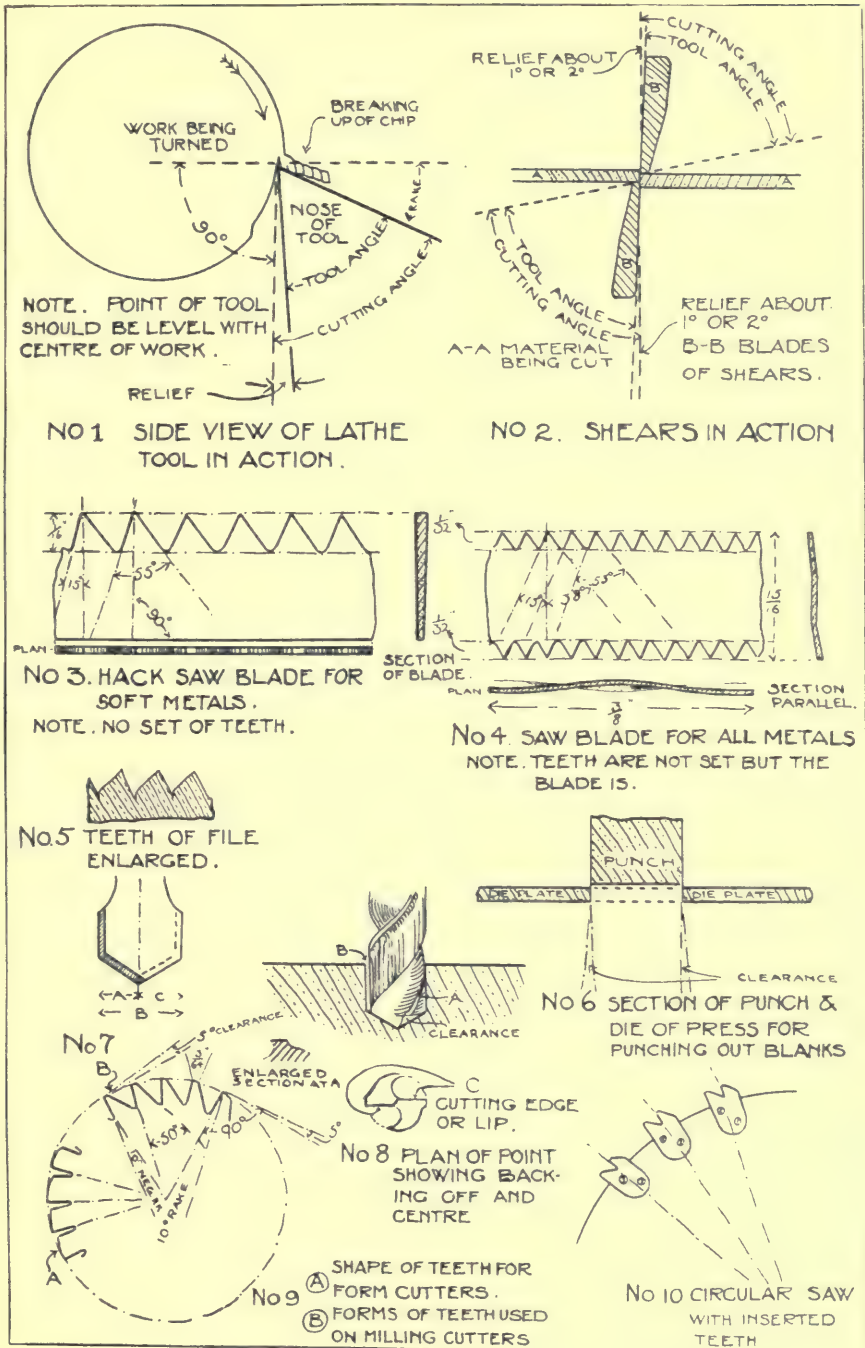 WORK BEING
TURNED
BREAKING
UP OF CHIP
90°
NOSE
OF
TOOL
RAKE
TOOL ANGLE
CUTTING ANGLE
NOTE. POINT OF TOOL
SHOULD BE LEVEL WITH
CENTRE OF WORK.
RELIEF
NO 1 SIDE VIEW OF LATHE
TOOL IN ACTION.
RELIEF ABOUT
1° OR 2°
CUTTING ANGLE
TOOL ANGLE
B
A
A
B
TOOL ANGLE
CUTTING ANGLE
A-A MATERIAL
BEING CUT
RELIEF ABOUT
1° OR 2°
B-B BLADES
OF SHEARS.
NO 2. SHEARS IN ACTION
1/16"
15°
55°
90°
PLAN
SECTION
OF BLADE.
NO 3. HACK SAW BLADE FOR
SOFT METALS.
NOTE. NO SET OF TEETH.
1/32"
15°
38°
55°
15/6
1/32"
PLAN
SECTION
PARALLEL.
3/8"
No 4. SAW BLADE FOR ALL METALS
NOTE. TEETH ARE NOT SET BUT THE
BLADE IS.
No.5 TEETH OF FILE
ENLARGED.
A C
B
No 7
B
A
CLEARANCE
PUNCH
DIE PLATE
DIE PLATE
CLEARANCE
No 6 SECTION OF PUNCH &
DIE OF PRESS FOR
PUNCHING OUT BLANKS
ENLARGED
SECTION AT A
C
CUTTING EDGE
OR LIP.
No 8 PLAN OF POINT
SHOWING BACK-
ING OFF AND
CENTRE
5° CLEARANCE
B
50°
90°
5°
10° RAKE
A
No 9
A SHAPE OF TEETH FOR
FORM CUTTERS.
B FORMS OF TEETH USED
ON MILLING CUTTERS
No 10 CIRCULAR SAW
WITH INSERTED
TEETH